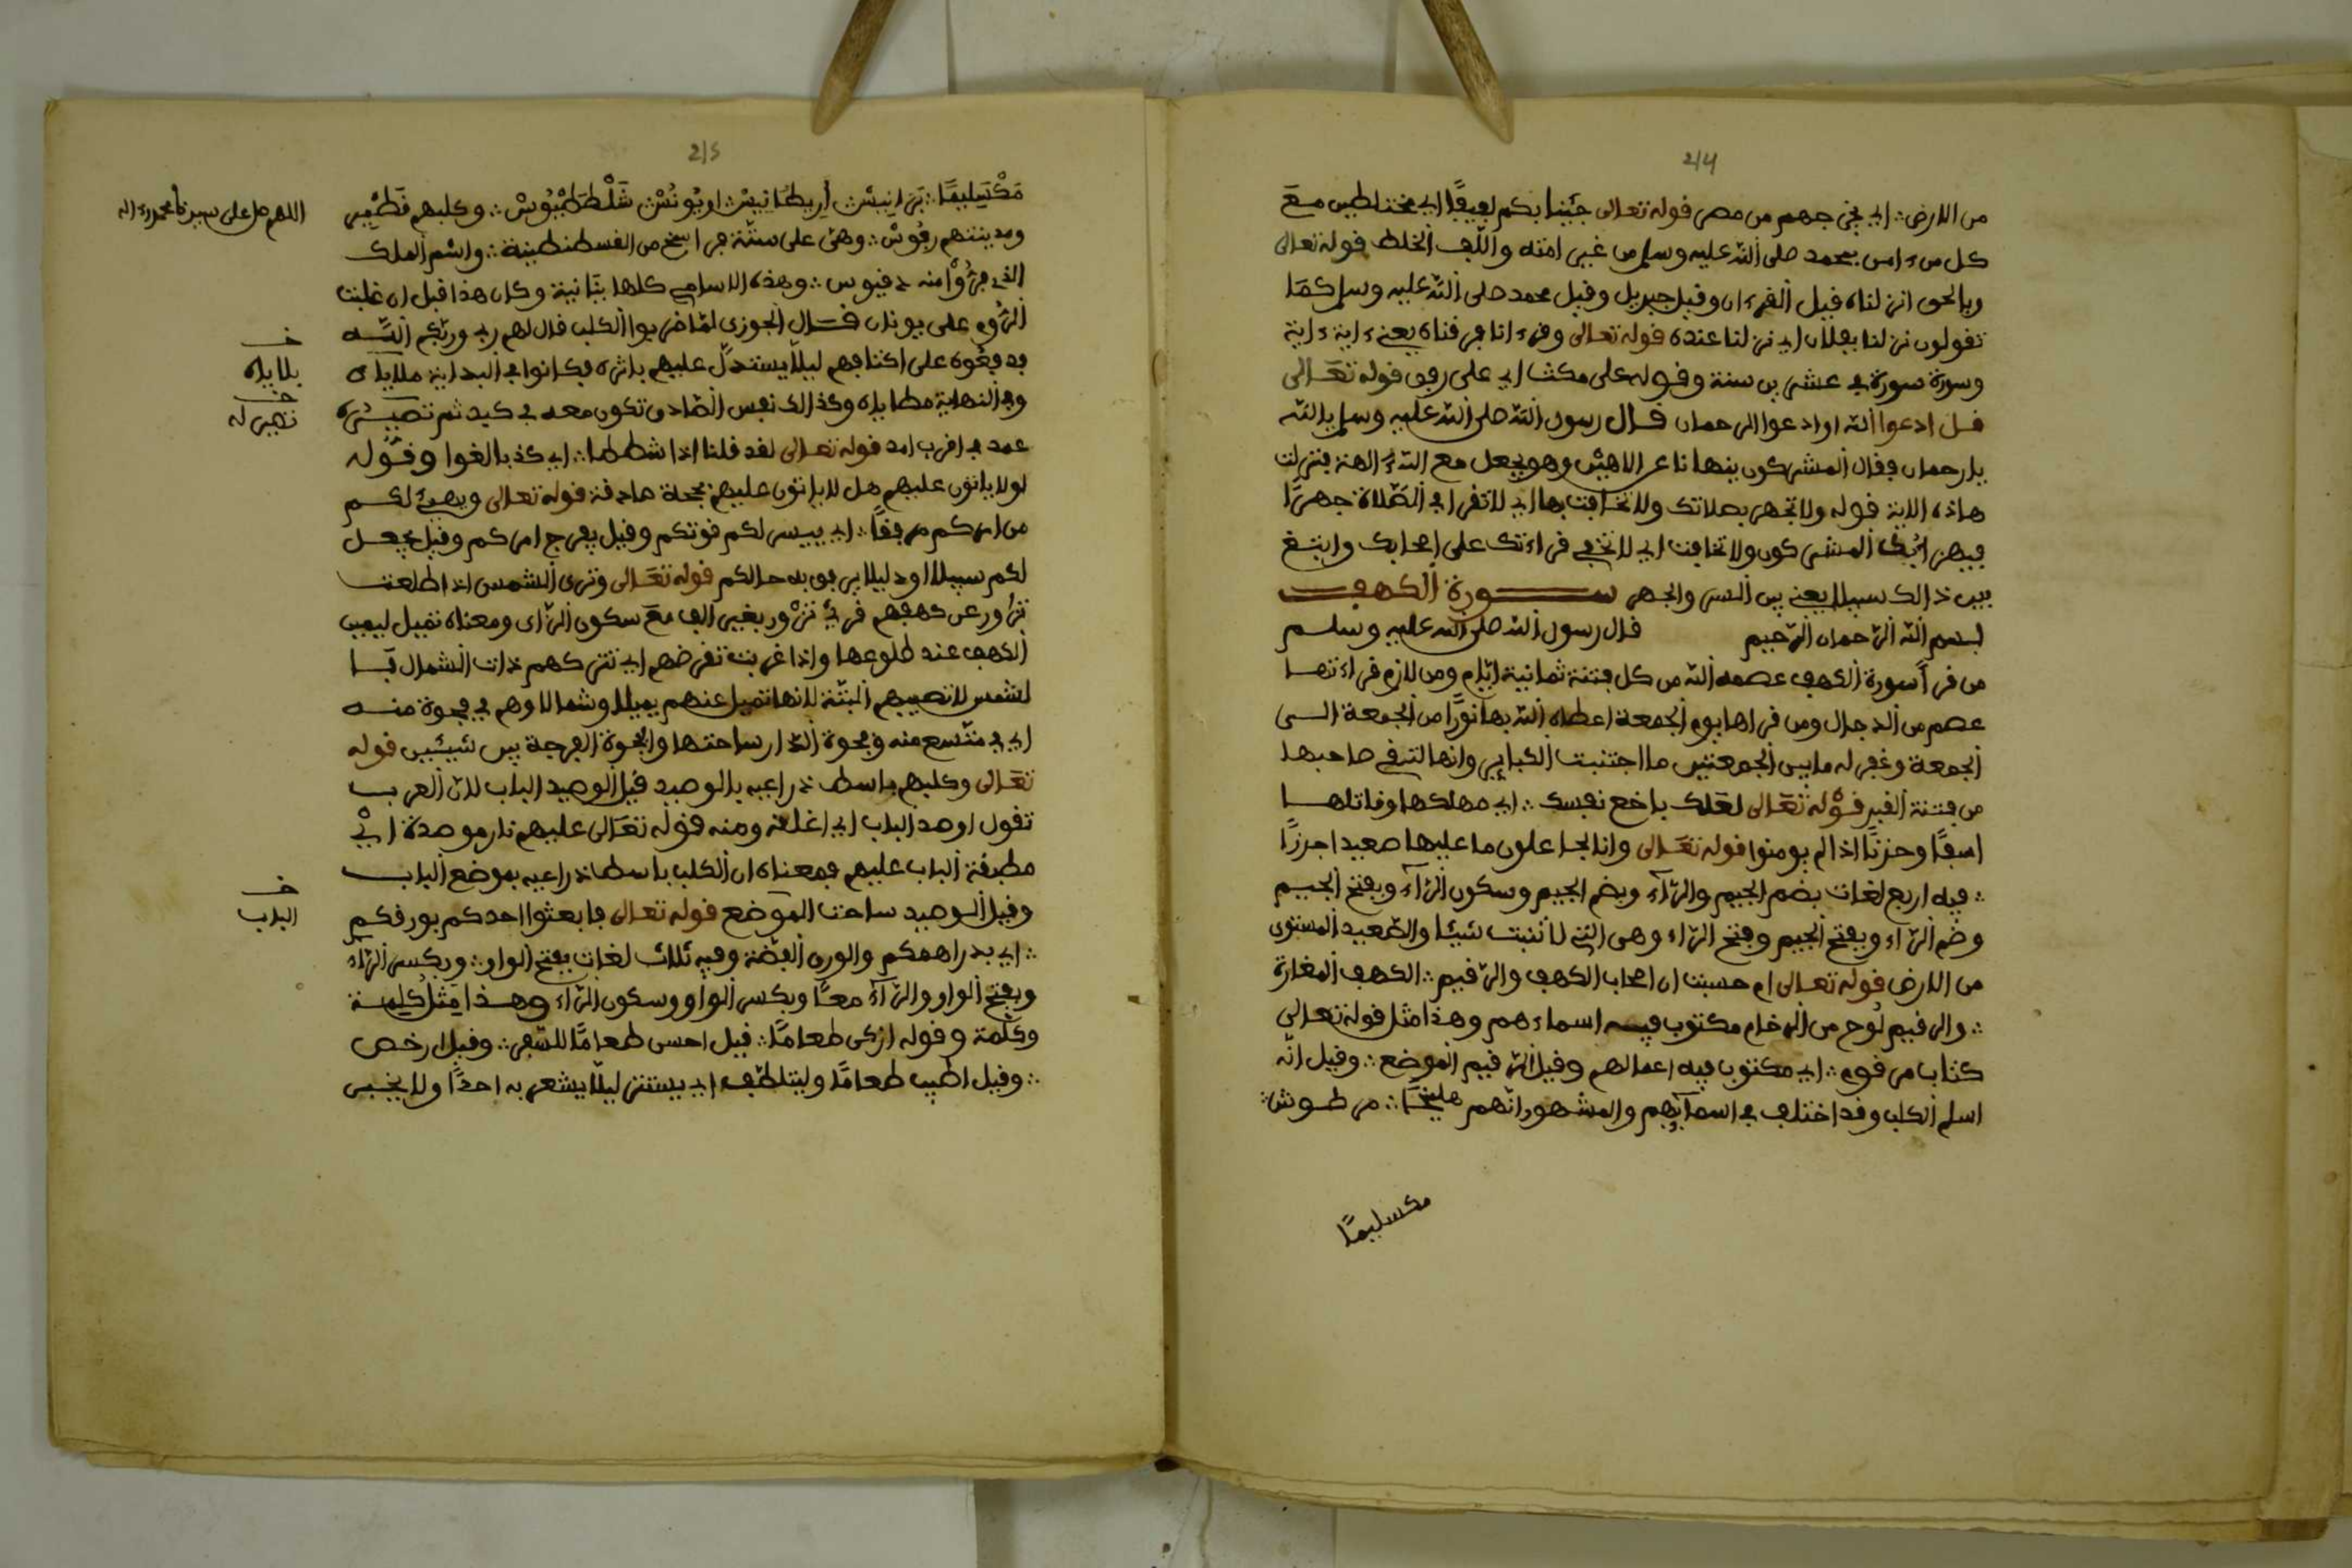 214
من الارض ∴ اي يخرجهم من مصر قوله تعالى جئينا بكم لفيفًا اي مختلطين مع
كل من ءامن بمحمد صلى الله عليه وسلم من غير امته واللّف الخلط قوله تعالى
وبالحق انزلناه قيل القرءان وقيل جبريل وقيل محمد صلى الله عليه وسلم كما
تقولون نزلنا بفلان اي نزلنا عنده قوله تعالى وقرءانا فرقناه يعني ءاية ءاية
وسورة سورة في عشرين سنة وقوله على مكث اي على رفق قوله تعالى
قل ادعوا الله او ادعوا الرحمان قال رسول الله صلى الله عليه وسلم يا الله
يا رحمان فقال المشركون ينهانا عن الاهين وهو يجعل مع الله الهة فنزلت
هاذه الاية قوله ولا تجهر بصلاتك ولا تخافت بها اي لا تقرا في الصلاة جهرًا
فيهز ابك المشركون ولا تخافت اي لا تخفي قراءتك على اصحابك وابتغ
بين ذالك سبيلا يعني بين السر والجهر سورة الكهف
بسم الله الرحمان الرحيم قال رسول الله صلى الله عليه وسلم
من قرأ سورة الكهف عصمه الله من كل فتنة ثمانية ايام ومن لازم قراءتها
عصم من الدجال ومن قراها يوم الجمعة اعطاه الله بها نورًا من الجمعة الى
الجمعة وغفر له ما بين الجمعتين ما اجتنبت الكباير وانها لتقي صاحبها
من فتنة القبر قوله تعالى لعلك باخع نفسك ∴ اي مهلكها وقاتلها
اسفًا وحزنًا اذا لم يومنوا قوله تعالى وانا لجاعلون ما عليها صعيدا جرزًا
∴ فيه اربع لغات بضم الجيم والراء وبضم الجيم وسكون الراء وبفتح الجيم
وضم الراء وبفتح الجيم وفتح الراء وهى التي لا تنبت شيئا والصعيد المستوى
من الارض قوله تعالى ام حسبت ان اصحاب الكهف والرقيم ∴ الكهف المغارة
∴ والرقيم لوح من الرخام مكتوب فيه اسماءهم وهذا مثل قوله تعالى
كتاب مرقوم ∴ اي مكتوب فيه اعمالهم وقيل الرقيم الموضع ∴ وقيل انه
اسلم الكلب وقد اختلف في اسمايهم والمشهور انهم مليخًا ∴ مرطوش ∴
مكسليمًا
215
مكسليمًا ∴ اريطانيس اويونس شلططيوس ∴ وكلبهم قطمير
ومدينتهم رفوس ∴ وهى على ستة فراسخ من القسطنطينية ∴ واسم الملك
الذي فرّوا منه دقيوس ∴ وهذه الاسامي كلها يتانية وكان هذا قبل ان غلبت
الروم على يونان قال الجوزى لما ضربوا الكلب قال لهم ربي وربكم الله
فدفعوه على اكتافهم ليلا يستدل عليهم باثره فكانوا في البداية ملاياه
وفي النهاية مطاياه وكذالك نفس الصادق تكون معه في كيد ثم تصير
عمد في اقرب امد قوله تعالى لقد قلنا اذا شططا ∴ اي كذبا الغوا وقوله
لولا ياتون عليهم هل لا ياتون عليهم بحجة صادقة قوله تعالى ويهيئ لكم
من امركم مرفقًا ∴ اي ييسر لكم قوتكم وقيل يفرج امركم وقيل يجعل
لكم سبيلا او دليلا يرفق به حالكم قوله تعالى وترى الشمس اذا طلعت
تزاور عن كهفهم قرئ تزور بغير الف مع سكون الزاى ومعناه تميل ليمين
الكهف عند طلوعها واذا غربت تقرضهم اي تتركهم ذات الشمال فا
لشمس لا تصيبهم البتة لانها تميل عنهم يمينا وشمالا وهم في فجوة منه
اي في متسع منه وفجوة الدار ساحتها والفجوة الفرجة بين شيئين قوله
تعالى وكلبهم باسط ذراعيه بالوصيد قيل الوصيد الباب لان العرب
تقول اوصد الباب اي اغلقه ومنه قوله تعالى عليهم نار موصدة اي
مطبقة الباب عليهم فمعناه ان الكلب باسط ذراعيه بموضع الباب
وقيل الوصيد ساحت الموضع قوله تعالى فابعثوا احدكم بورقكم
∴ اي بدراهمكم والورق الفضة وفيه ثلاث لغات بفتح الواو ∴ وبكسر الراء
وبفتح الواو والراء معًا وبكسر الواو وسكون الراء وهذا مثل كلمة
وكلمة وقوله ازكى طعامًا ∴ قيل احسن طعامًا للسفر ∴ وقيل ارخص
∴ وقيل اطيب طعامًا وليتلطف اي يستتر ليلا يشعر به احدًا ولا يخبر
اللهم صل على سيدنا محمد وءاله
خـ
بلاياه
خـ
تصير له
خـ
الباب